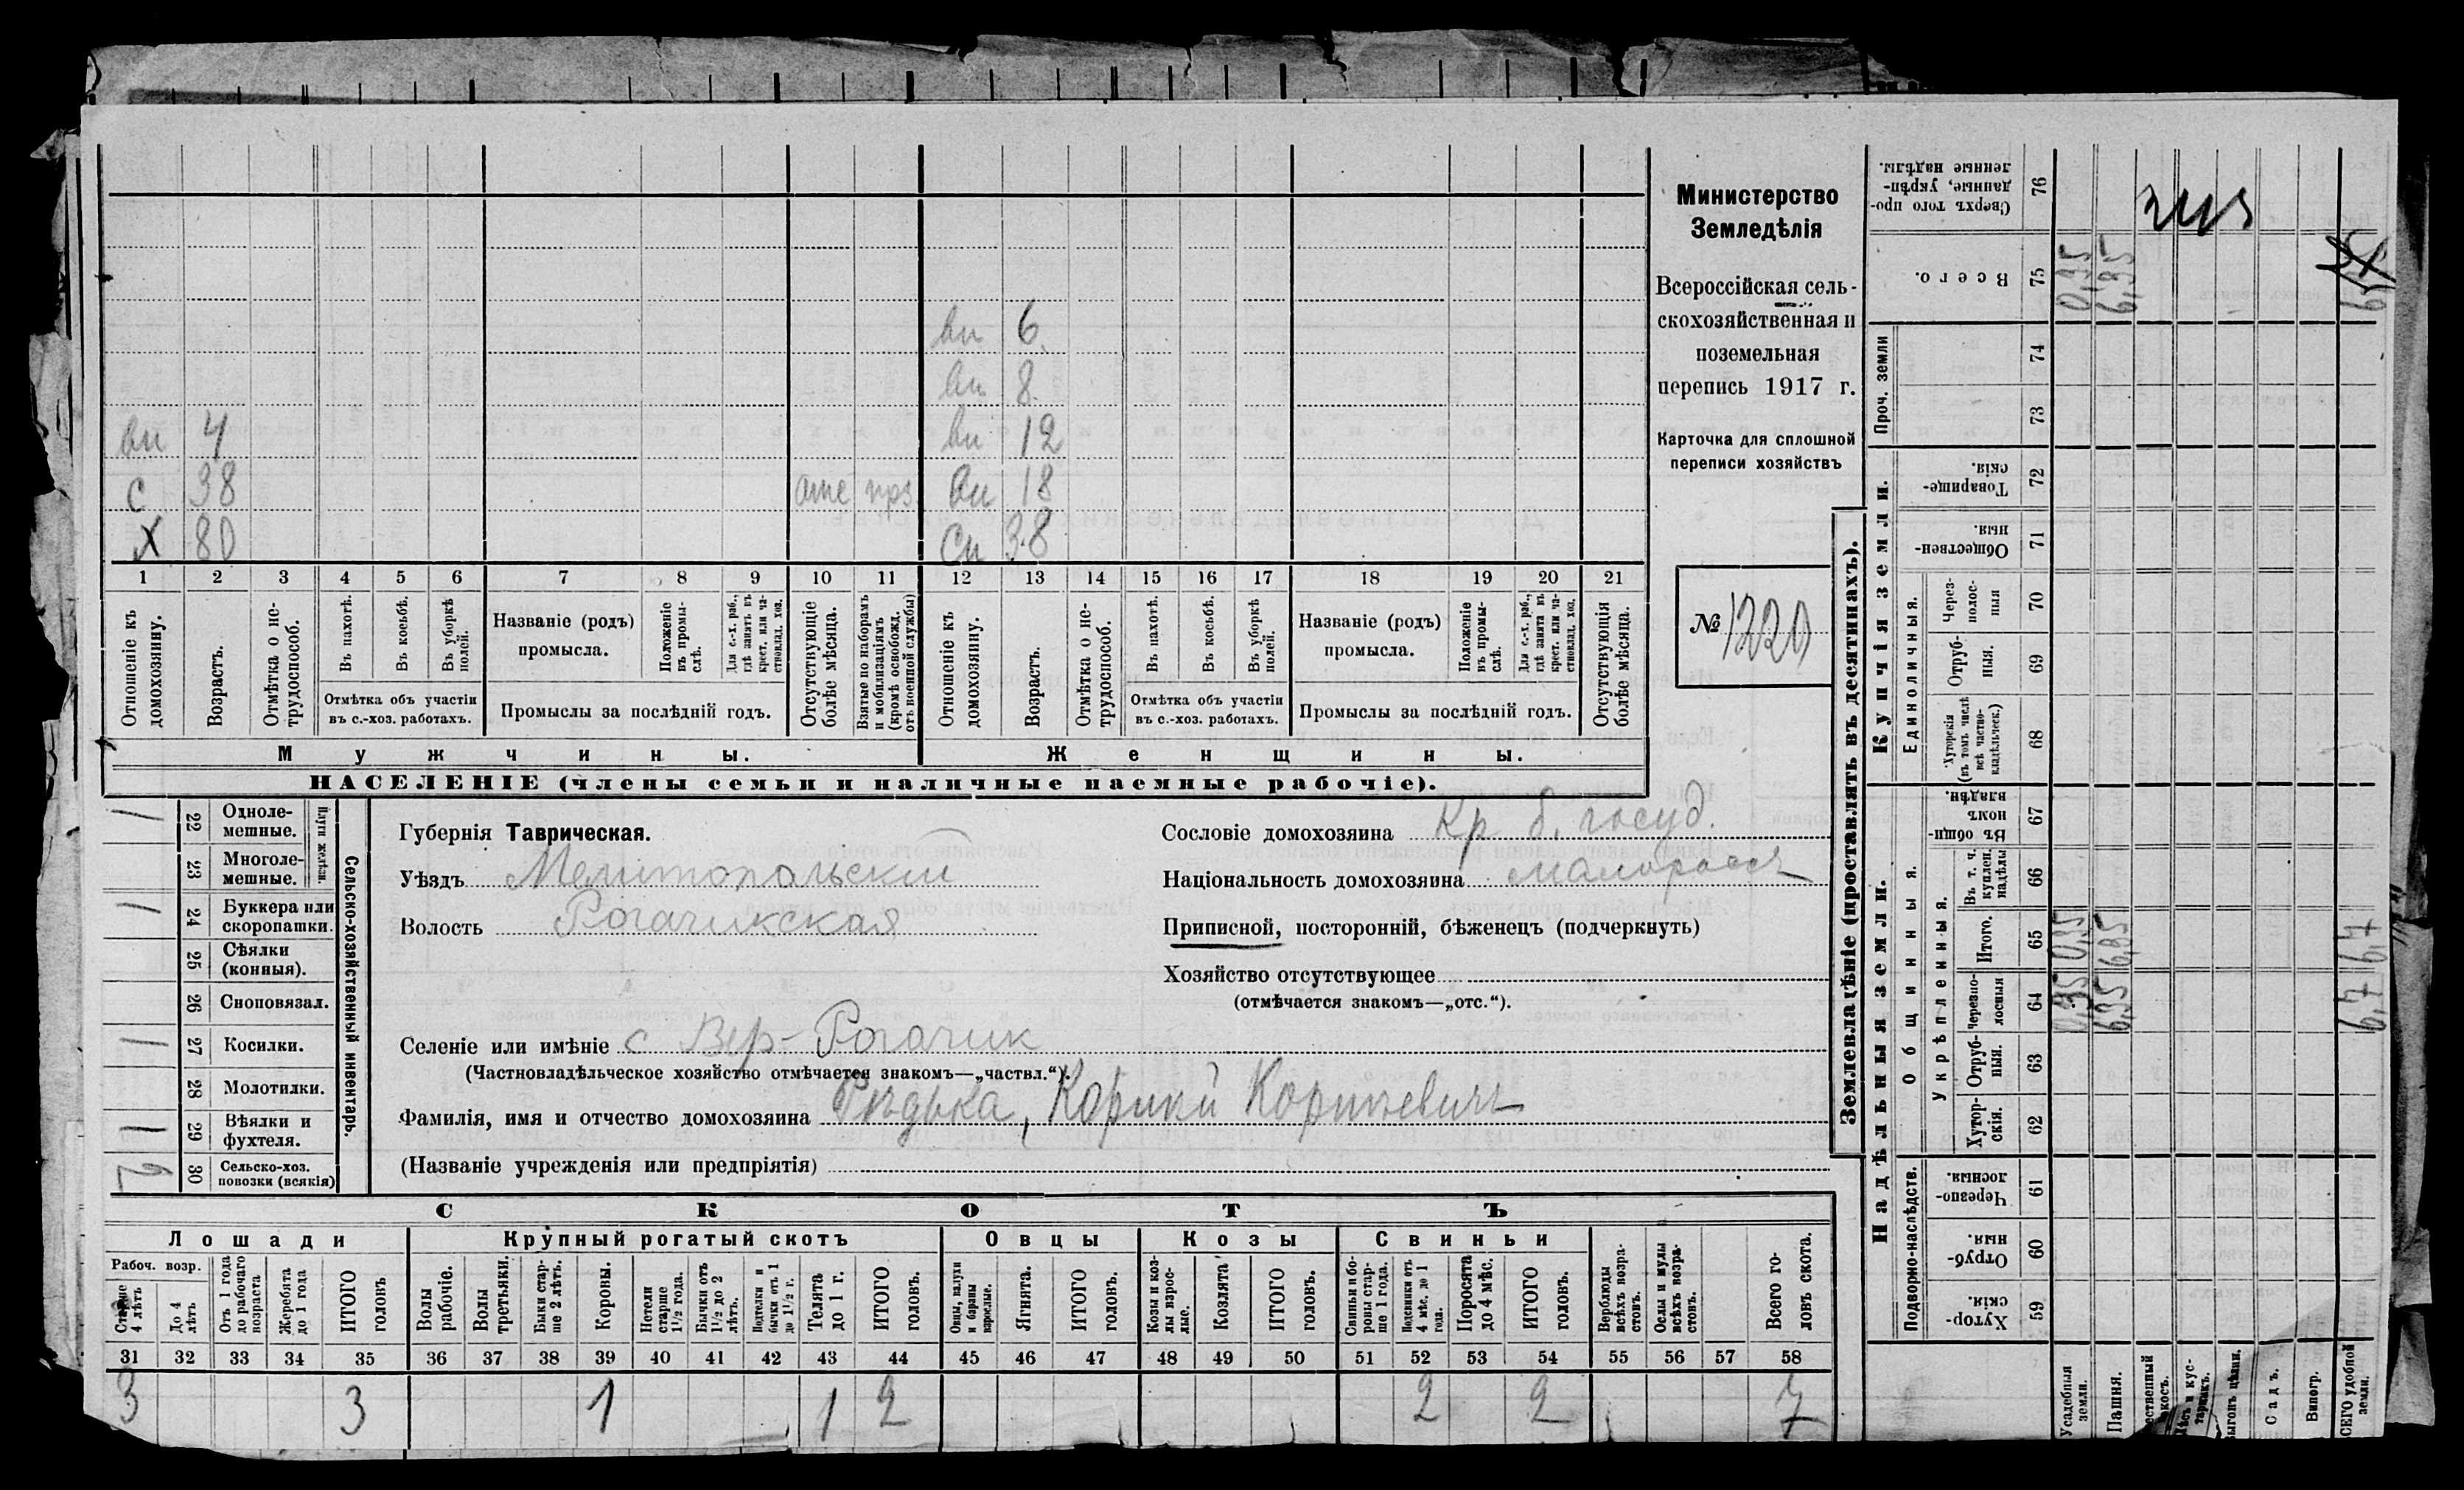 Министерство
Земледѣлія
Всероссійская сель-
скохозяйственная и
поземельная
перепись 1917 г.
Карточка для сплошной
переписи хозяйствъ
№ 1320
вн 6
вн 8
вн 4 вн 12
с 38 отс вн 18
х 80 сн 38
1 2 3 4 5 6 7 8 9 10 11 12 13 14 15 16 17 18 19 20 21
Отношеніе къ домохозяину.
Возрастъ.
Отмѣтка о не-трудоспособ.
Въ пахотѣ.
Въ косьбѣ.
Въ уборкѣ полей.
Отмѣтка объ участіи
въ с.-хоз. работахъ.
Названіе (родъ)
промысла.
Положеніе въ промы-слѣ.
Для с.-х. раб., гдѣ занятъ въ крест. или ча-стновлад. хоз.
Промыслы за послѣдній годъ.
Отсутствующіе болѣе мѣсяца.
Взятые по наборамъ и мобилизаціямъ (кромѣ освобожд. отъ военной службы)
Отношеніе къ домохозяину.
Возрастъ.
Отмѣтка о не-трудоспособ.
Въ пахотѣ.
Въ косьбѣ.
Въ уборкѣ полей.
Отмѣтка объ участіи
въ с.-хоз. работахъ.
Названіе (родъ)
промысла.
Положеніе въ промы-слѣ.
Для с.-х. раб., гдѣ занята въ крест. или ча-стновлад. хоз.
Промыслы за послѣдній годъ.
Отсутствующія болѣе мѣсяца.
Мужчины. Женщины.
НАСЕЛЕНІЕ (члены семьи и наличные наемные рабочіе).
Сельско-хозяйственный инвентарь.
Плуги желѣзн.
1 22 Одноле-мешные.
23 Многоле-мешные.
1 24 Буккера или скоропашки.
25 Сѣялки (конныя).
26 Сноповязал.
1 27 Косилки.
28 Молотилки.
1 29 Вѣялки и фухтеля.
30 Сельско-хоз. повозки (всякія)
Губернія Таврическая.
Уѣздъ Мелитопольскій
Волость Рогачикская
Сословіе домохозяина Кр б. госуд.
Національность домохозяина малороссъ
Приписной, посторонній, бѣженецъ (подчеркнуть)
Хозяйство отсутствующее
(отмѣчается знакомъ—„отс.“).
Селеніе или имѣніе с Вер-Рогачик
(Частновладѣльческое хозяйство отмѣчается знакомъ—„частвл.“).
Фамилія, имя и отчество домохозяина Рѣдька, Корнѣй Корнѣевичъ
(Названіе учрежденія или предпріятія)
СКОТЪ
Лошади Крупный рогатый скотъ Овцы Козы Свиньи
Рабоч. возр.
Старше 4 лѣтъ
До 4 лѣтъ
Отъ 1 года до рабочаго возраста
Жеребята до 1 года
ИТОГО головъ
Волы рабочіе.
Волы третьяки.
Быки стар-ше 2 лѣтъ.
Коровы.
Нетели старше 1½ года.
Бычки отъ 1½ до 2 лѣтъ.
Подтелки и бычки отъ 1 до 1½ г.
Телята до 1 г.
ИТОГО головъ.
Овцы, валухи и бараны взрослые.
Ягнята.
ИТОГО головъ.
Козы и коз-лы взрос-лые.
Козлята
ИТОГО головъ.
Свиньи и бо-ровы стар-ше 1 года.
Подсвинки отъ 4 мѣс. до 1 года.
Поросята до 4 мѣс.
ИТОГО головъ.
Верблюды всѣхъ возра-стовъ.
Ослы и мулы всѣхъ возра-стовъ.
Всего го-ловъ скота.
31 32 33 34 35 36 37 38 39 40 41 42 43 44 45 46 47 48 49 50 51 52 53 54 55 56 57 58
3 3 1 1 2 2 2 7
Землевладѣніе (проставлять въ десятинахъ).
Надѣльныя земли.
Подворно-наслѣдств.
Хутор-скія. 59
Отруб-ныя. 60
Черезпо-лосныя. 61
Общинныя.
Укрѣпленныя.
Хутор-скія. 62
Отруб-ныя. 63
Черезпо-лосныя 64 0,35 6,35 6,7
Итого. 65 0,35 6,35 6,7
Въ т. ч. куплен. надѣлы 66
Въ общин-номъ владѣн. 67
Купчія земли.
Единоличныя.
Хуторскія (въ томъ числѣ всѣ частно-владѣльческ.) 68
Отруб-ныя. 69
Через-полос-ныя 70
Обществен-ныя. 71
Товарище-скія. 72
Проч. земли
73
74
Всего. 75 0,35 6,35
Сверхъ того про-данные, укрѣп-ленные надѣлы. 76
Усадебныя земли.
Пашня.
Выгонъ цѣлин.
Садъ.
Виногр.
ВСЕГО удобной земли.